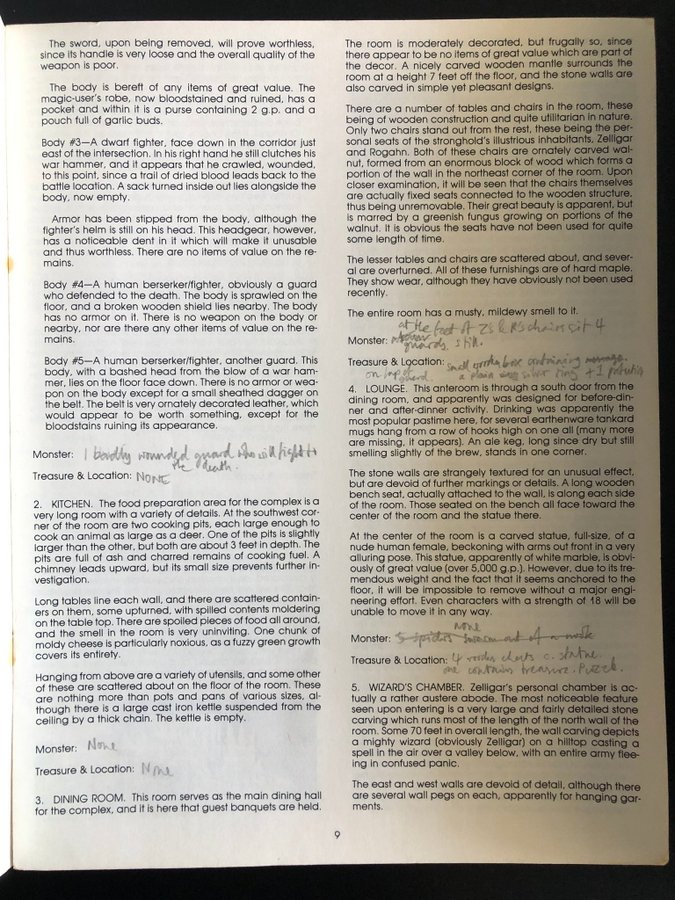 The sword, upon being removed, will prove worthless,
since its handle is very loose and the overall quality of the
weapon is poor.
The body is bereft of any items of great value. The
magic-user's robe, now bloodstained and ruined, has a
pocket and within it is a purse containing 2 g.p. and a
pouch full of garlic buds.
Body #3—A dwarf fighter, face down in the corridor just
east of the intersection. In his right hand he still clutches his
war hammer, and it appears that he crawled, wounded,
to this point, since a trail of dried blood leads back to the
battle location. A sack turned inside out lies alongside the
body, now empty.
Armor has been stipped from the body, although the
fighter's helm is still on his head. This headgear, however,
has a noticeable dent in it which will make it unusable
and thus worthless. There are no items of value on the re-
mains.
Body #4—A human berserker/fighter, obviously a guard
who defended to the death. The body is sprawled on the
floor, and a broken wooden shield lies nearby. The body
has no armor on it. There is no weapon on the body or
nearby, nor are there any other items of value on the re-
mains.
Body #5—A human berserker/fighter, another guard. This
body, with a bashed head from the blow of a war ham-
mer, lies on the floor face down. There is no armor or wea-
pon on the body except for a small sheathed dagger on
the belt. The belt is very ornately decorated leather, which
would appear to be worth something, except for the
bloodstains ruining its appearance.
Monster: 1 badly wounded guard who will fight to
the death.
Treasure & Location: NONE
2. KITCHEN. The food preparation area for the complex is a
very long room with a variety of details. At the southwest cor-
ner of the room are two cooking pits, each large enough to
cook an animal as large as a deer. One of the pits is slightly
larger than the other, but both are about 3 feet in depth. The
pits are full of ash and charred remains of cooking fuel. A
chimney leads upward, but its small size prevents further in-
vestigation.
Long tables line each wall, and there are scattered contain-
ers on them, some upturned, with spilled contents moldering
on the table top. There are spoiled pieces of food all around,
and the smell in the room is very uninviting. One chunk of
moldy cheese is particularly noxious, as a fuzzy green growth
covers its entirety.
Hanging from above are a variety of utensils, and some other
of these are scattered about on the floor of the room. These
are nothing more than pots and pans of various sizes, al-
though there is a large cast iron kettle suspended from the
ceiling by a thick chain. The kettle is empty.
Monster: None
Treasure & Location: None
3. DINING ROOM. This room serves as the main dining hall
for the complex, and it is here that guest banquets are held.
The room is moderately decorated, but frugally so, since
there appear to be no items of great value which are part of
the decor. A nicely carved wooden mantle surrounds the
room at a height 7 feet off the floor, and the stone walls are
also carved in simple yet pleasant designs.
There are a number of tables and chairs in the room, these
being of wooden construction and quite utilitarian in nature.
Only two chairs stand out from the rest, these being the per-
sonal seats of the stronghold's illustrious inhabitants, Zelligar
and Rogahn. Both of these chairs are ornately carved wal-
nut, formed from an enormous block of wood which forms a
portion of the wall in the northeast corner of the room. Upon
closer examination, it will be seen that the chairs themselves
are actually fixed seats connected to the wooden structure,
thus being unremovable. Their great beauty is apparent, but
is marred by a greenish fungus growing on portions of the
walnut. It is obvious the seats have not been used for quite
some length of time.
The lesser tables and chairs are scattered about, and sever-
al are overturned. All of these furnishings are of hard maple.
They show wear, although they have obviously not been used
recently.
The entire room has a musty, mildewy smell to it.
at the foot of Z's & R's chairs sit 4
Monster: guards still.
Treasure & Location: small wooden box containing
on guard a plain silver ring +1 protection
4. LOUNGE. This anteroom is through a south door from the
dining room, and apparently was designed for before-din-
ner and after-dinner activity. Drinking was apparently the
most popular pastime here, for several earthenware tankard
mugs hang from a row of hooks high on one all (many more
are missing, it appears). An ale keg, long since dry but still
smelling slightly of the brew, stands in one corner.
The stone walls are strangely textured for an unusual effect,
but are devoid of further markings or details. A long wooden
bench seat, actually attached to the wall, is along each side
of the room. Those seated on the bench all face toward the
center of the room and the statue there.
At the center of the room is a carved statue, full-size, of a
nude human female, beckoning with arms out front in a very
alluring pose. This statue, apparently of white marble, is obvi-
ously of great value (over 5,000 g.p.). However, due to its tre-
mendous weight and the fact that it seems anchored to the
floor, it will be impossible to remove without a major engi-
neering effort. Even characters with a strength of 18 will be
unable to move it in any way.
None
Monster: 5 spiders swarm out of a
Treasure & Location: 4 wooden chests c. statue.
one contains treasure. Puzzle.
5. WIZARD'S CHAMBER. Zelligar's personal chamber is ac-
tually a rather austere abode. The most noticeable feature
seen upon entering is a very large and fairly detailed stone
carving which runs most of the length of the north wall of the
room. Some 70 feet in overall length, the wall carving depicts
a mighty wizard (obviously Zelligar) on a hilltop casting a
spell in the air over a valley below, with an entire army flee-
ing in confused panic.
The east and west walls are devoid of detail, although there
are several wall pegs on each, apparently for hanging gar-
ments.
9